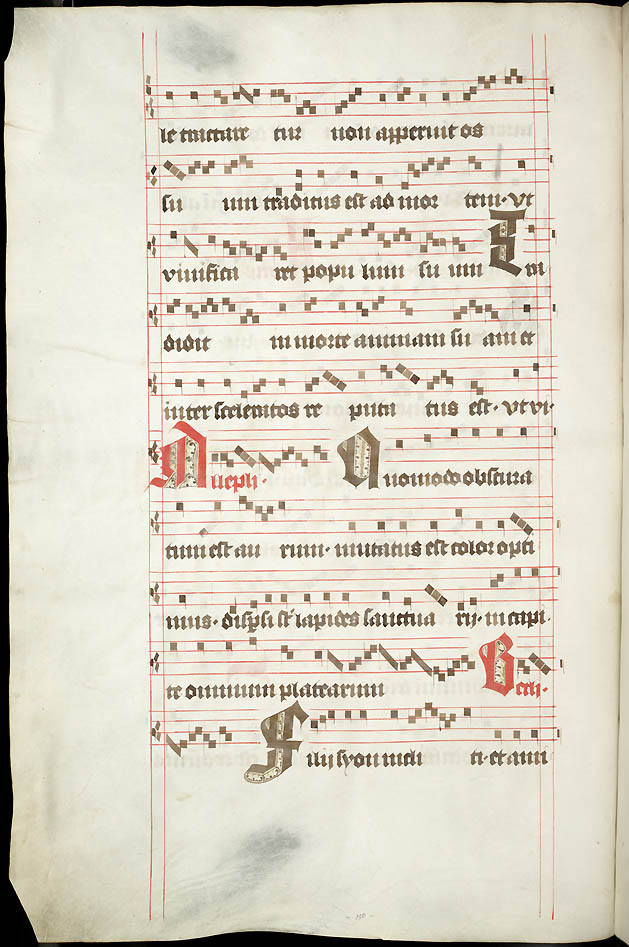 le tractare tur non apperuit os
su um traditus est ad mor tem · vt
vivifica ret popu lum su um Tra
didit in morte animam su am et
inter sceleratos re puta tus est · vt vi·
Aleph · Quomodo obscura
tum est au rum · mutatus est color opti
mus · dispsi st lapides sanctua rij · in capi
te omnium platearum Beth ·
Filij syon incli ti · et ami
150